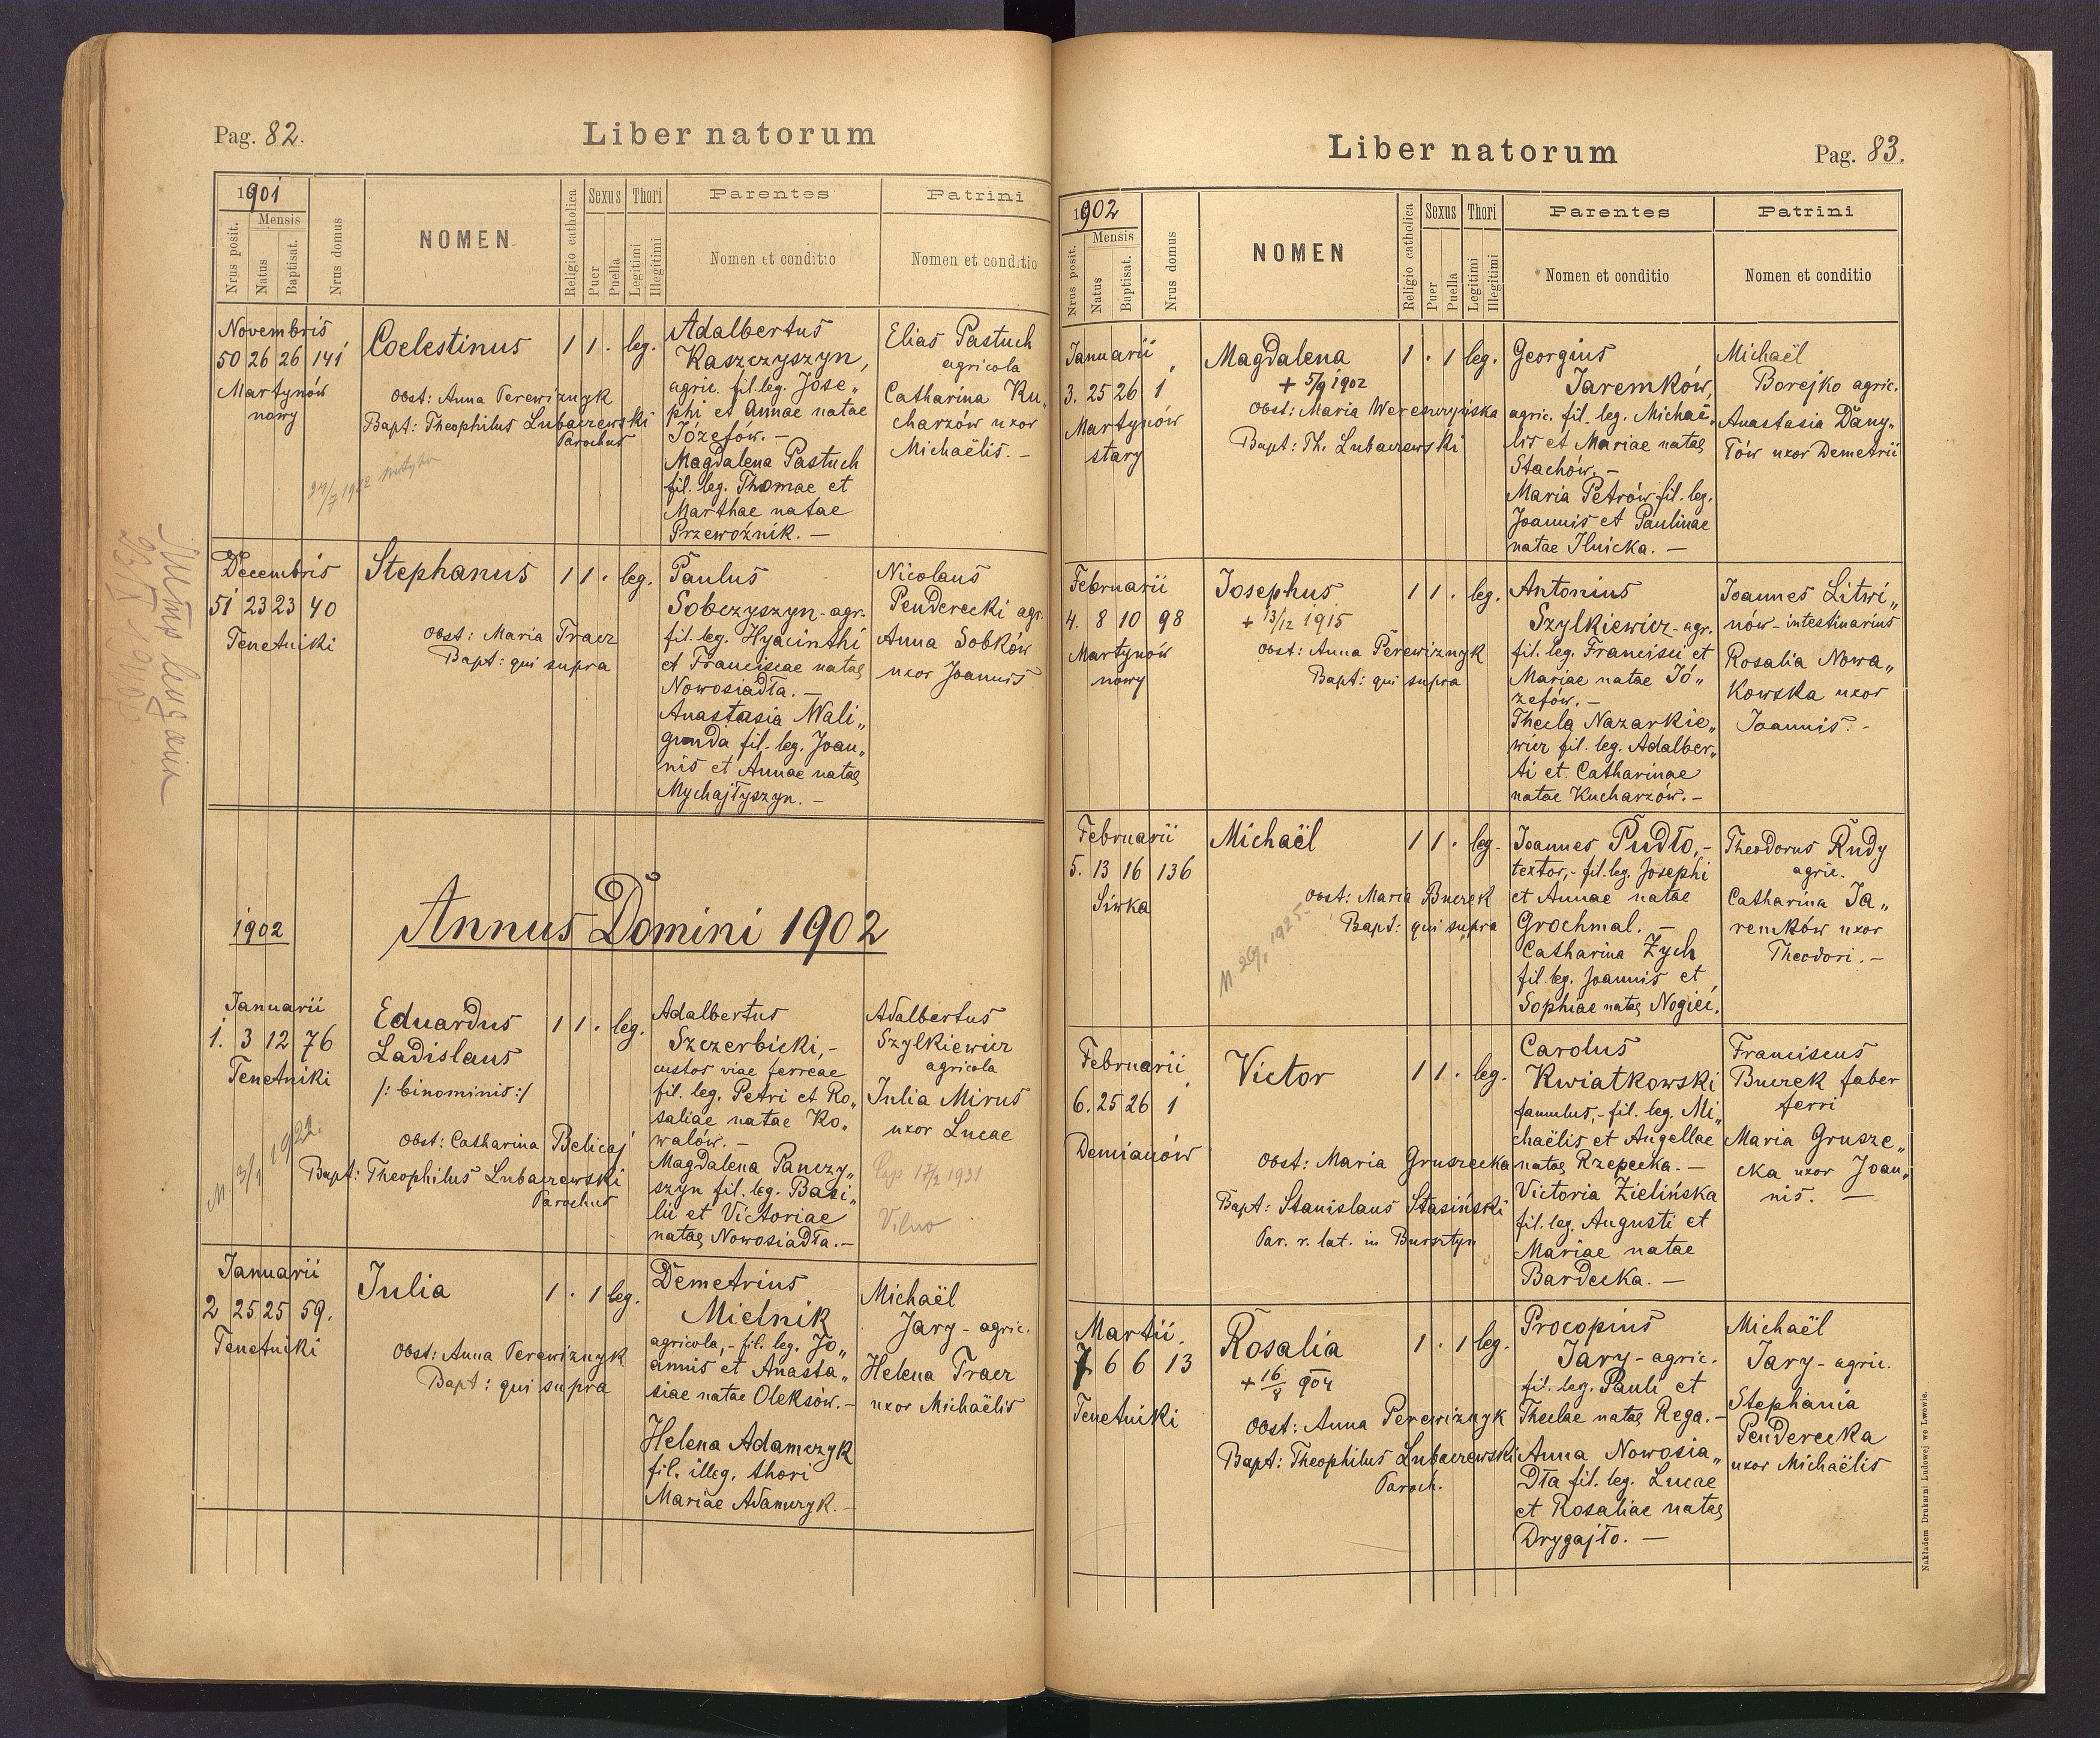 Pag. 82.
Liber natorum
1901
Nrus posit.
Mensis
Natus
Baptisat.
Nrus domus
NOMEN
Religio catholica
Sexus
Puer
Puella
Thori
Legitimi
Illegitimi
Parentes
Nomen et conditio
Patrini
Nomen et conditio
Novembris
50 26 26 141
Martynów
nowy
Coelestinus
1 1 . leg.
Obst: Anna Perewiznyk
Bapt: Theophilus Lubaczewski
Parochus
Adalbertus
Kaszczyszyn,
agric. fil. leg. Jose„
phi et Annae natae
Józefów. —
Magdalena Pastuch
fil. leg. Thomae et
Marthae natae
Przewoźnik. —
Elias Pastuch
agricola
Catharina Ku„
charzów uxor
Michaëlis. —
Decembris
51 23 23 40
Tenetniki
Stephanus
1 1 . leg.
Obst: Maria Tracz
Bapt: qui supra
Paulus
Sobczyszyn - agr.
fil. leg. Hyacinthi
et Franciscae natae
Nowosiadła. —
Anastasia Wali„
gunda fil. leg. Joan„
nis et Annae natae
Mychajłyszyn. —
Nicolaus
Penderecki agr.
Anna Sobków
uxor Joannis
1902
Annus Domini 1902
Januarii
1. 3 12 76
Tenetniki
M. 3/9 1922.
Eduardus
Ladislaus
/: binominis :/
1 1 . leg.
Obst: Catharina Belicaj
Bapt: Theophilus Lubaczewski
Parochus
Adalbertus
Szczerbicki, -
custos viae ferreae
fil. leg. Petri et Ro„
saliae natae Ko„
walów. —
Magdalena Panczy„
szyn fil. leg. Basi„
lii et Victoriae
natae Nowosiadła. —
Adalbertus
Szylkiewicz
agricola
Julia Mirus
uxor Lucae
17/2 1931
Vilno
Januarii
2 25 25 59.
Tenetniki
Julia
1 . 1 leg.
Obst: Anna Perewiznyk
Bapt: qui supra
Demetrius
Mielnik
agricola, - fil. leg. Jo„
annis et Anasta„
siae natae Oleksów. —
Helena Adamczyk
fil. illeg. thori
Mariae Adamczyk. —
Michaël
Jary - agric.
Helena Tracz
uxor Michaëlis
Liber natorum
Pag. 83.
1902
Nrus posit.
Mensis
Natus
Baptisat.
Nrus domus
NOMEN
Religio catholica
Sexus
Puer
Puella
Thori
Legitimi
Illegitimi
Parentes
Nomen et conditio
Patrini
Nomen et conditio
Januarii
3. 25 26 1
Martynów
stary
Magdalena
+ 5/9 1902
1 . 1 leg.
Obst: Maria Wereszczyńska
Bapt: Th. Lubaczewski
Georgius
Jaremków,
agric. fil. leg. Michaë„
lis et Mariae natae
Stachów. —
Maria Petrów fil. leg.
Joannis et Paulinae
natae Ilnicka. —
Michaël
Borejko agric.
Anastasia Dany„
łów uxor Demetrii
Februarii
4. 8 10 98
Martynów
nowy
Josephus
+ 13/12 1915
1 1 . leg.
Obst: Anna Perewiznyk
Bapt: qui supra
Antonius
Szylkiewicz - agr.
fil. leg. Francisci et
Mariae natae Jó„
zefów. —
Thecla Nazarkie„
wicz fil. leg. Adalber„
ti et Catharinae
natae Kucharzów. —
Joannes Litwi„
nów - intestinarius
Rosalia Nowa„
kowska uxor
Joannis. -
Februarii
5. 13 16 136
Siwka
Michaël
1 1 . leg.
Obst: Maria Buczek
Bapt: qui supra
Joannes Pudło, -
textor, - fil. leg. Josephi
et Annae natae
Grochmal. —
Catharina Zych
fil. leg. Joannis et
Sophiae natae Nogieć.
Theodorus Rudy
agric.
Catharina Ja„
remków uxor
Theodori. —
Februarii
6. 25 26 1
Demianów
Victor
1 1 . leg.
Obst: Maria Gruszecka
Bapt: Stanislaus Stasiński
Par. r. lat. in Bursztyn
Carolus
Kwiatkowski
famulus, - fil. leg. Mi„
chaëlis et Angellae
natae Rzepecka. —
Victoria Zielińska
fil. leg. Augusti et
Mariae natae
Bardecka. —
Franciscus
Buczek faber
ferri
Maria Grusze„
cka uxor Joan„
nis. —
Martii.
7 6 6 13
Tenetniki
Rosalia
+ 16/8 904
1 . 1 leg.
Obst: Anna Perewiznyk
Bapt: Theophilus Lubaczewski
Paroch.
Procopius
Jary - agric.
fil. leg. Pauli et
Theclae natae Rega. —
Anna Nowosia„
dła fil. leg. Lucae
et Rosaliae natae
Drygajło. —
Michaël
Jary - agric.
Stephania
Penderecka
uxor Michaëlis
Nakładem Drukarni Ludowej we Lwowie.